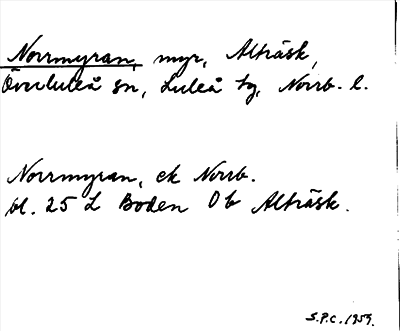 Norrmyran, myr, Alträsk,
Överluleå sn, Luleå tg, Norrb. l.
Norrmyran, ek Norrb.
bl. 25 L Boden Ob Alträsk.
S.P.C. 1959.